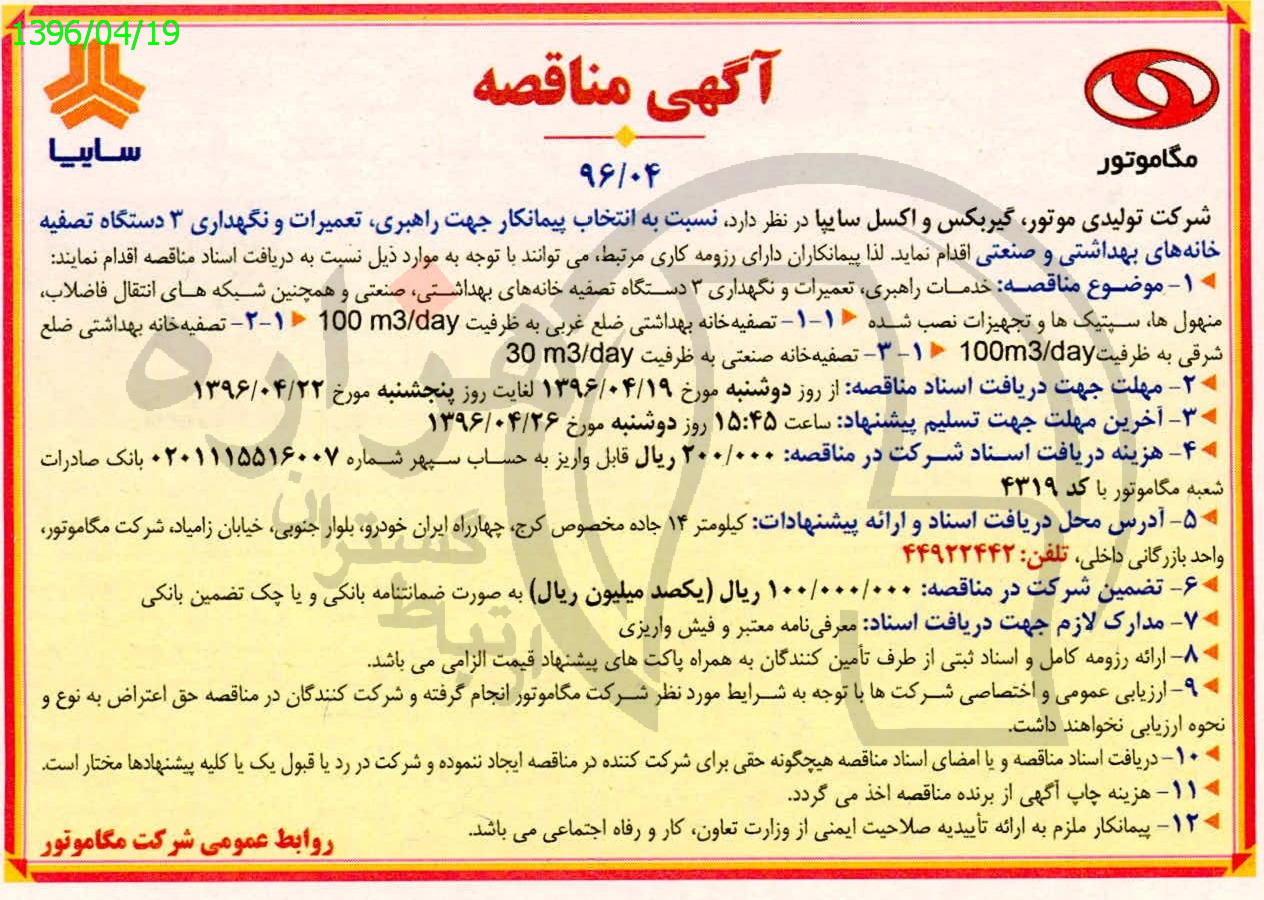 1396/04/19
آگهی مناقصه
سایپا
مگاموتور
۹۶/۰۴
شرکت تولیدی موتور، گیربکس و اکسل سایپا در نظر دارد، نسبت به انتخاب پیمانکار جهت راهبری، تعمیرات و نگهداری ۳ دستگاه تصفیه
خانه‌های بهداشتی و صنعتی اقدام نماید. لذا پیمانکاران دارای رزومه کاری مرتبط، می توانند با توجه به موارد ذیل نسبت به دریافت اسناد مناقصه اقدام نمایند:
۱- موضوع مناقصه: خدمات راهبری، تعمیرات و نگهداری ۳ دستگاه تصفیه خانه‌های بهداشتی، صنعتی و همچنین شبکه های انتقال فاضلاب،
منهول ها، سپتیک ها و تجهیزات نصب شده ۱-۱- تصفیه‌خانه بهداشتی ضلع غربی به ظرفیت 100 m3/day ۱-۲- تصفیه‌خانه بهداشتی ضلع
شرقی به ظرفیت 100m3/day ۱-۳- تصفیه‌خانه صنعتی به ظرفیت 30 m3/day
۲- مهلت جهت دریافت اسناد مناقصه: از روز دوشنبه مورخ ۱۳۹۶/۰۴/۱۹ لغایت روز پنجشنبه مورخ ۱۳۹۶/۰۴/۲۲
۳- آخرین مهلت جهت تسلیم پیشنهاد: ساعت ۱۵:۴۵ روز دوشنبه مورخ ۱۳۹۶/۰۴/۲۶
۴- هزینه دریافت اسناد شرکت در مناقصه: ۲۰۰/۰۰۰ ریال قابل واریز به حساب سپهر شماره ۰۲۰۱۱۱۵۵۱۶۰۰۷ بانک صادرات
شعبه مگاموتور با کد ۴۳۱۹
۵- آدرس محل دریافت اسناد و ارائه پیشنهادات: کیلومتر ۱۴ جاده مخصوص کرج، چهارراه ایران خودرو، بلوار جنوبی، خیابان زامیاد، شرکت مگاموتور،
واحد بازرگانی داخلی، تلفن: ۴۴۹۲۲۴۴۲
۶- تضمین شرکت در مناقصه: ۱۰۰/۰۰۰/۰۰۰ ریال (یکصد میلیون ریال) به صورت ضمانتنامه بانکی و یا چک تضمین بانکی
۷- مدارک لازم جهت دریافت اسناد: معرفی‌نامه معتبر و فیش واریزی
۸- ارائه رزومه کامل و اسناد ثبتی از طرف تأمین کنندگان به همراه پاکت های پیشنهاد قیمت الزامی می باشد.
۹- ارزیابی عمومی و اختصاصی شرکت ها با توجه به شرایط مورد نظر شرکت مگاموتور انجام گرفته و شرکت کنندگان در مناقصه حق اعتراض به نوع و
نحوه ارزیابی نخواهند داشت.
۱۰- دریافت اسناد مناقصه و یا امضای اسناد مناقصه هیچگونه حقی برای شرکت کننده در مناقصه ایجاد ننموده و شرکت در رد یا قبول یک یا کلیه پیشنهادها مختار است.
۱۱- هزینه چاپ آگهی از برنده مناقصه اخذ می گردد.
۱۲- پیمانکار ملزم به ارائه تأییدیه صلاحیت ایمنی از وزارت تعاون، کار و رفاه اجتماعی می باشد.
روابط عمومی شرکت مگاموتور
هزاره
گستران
ارتباط